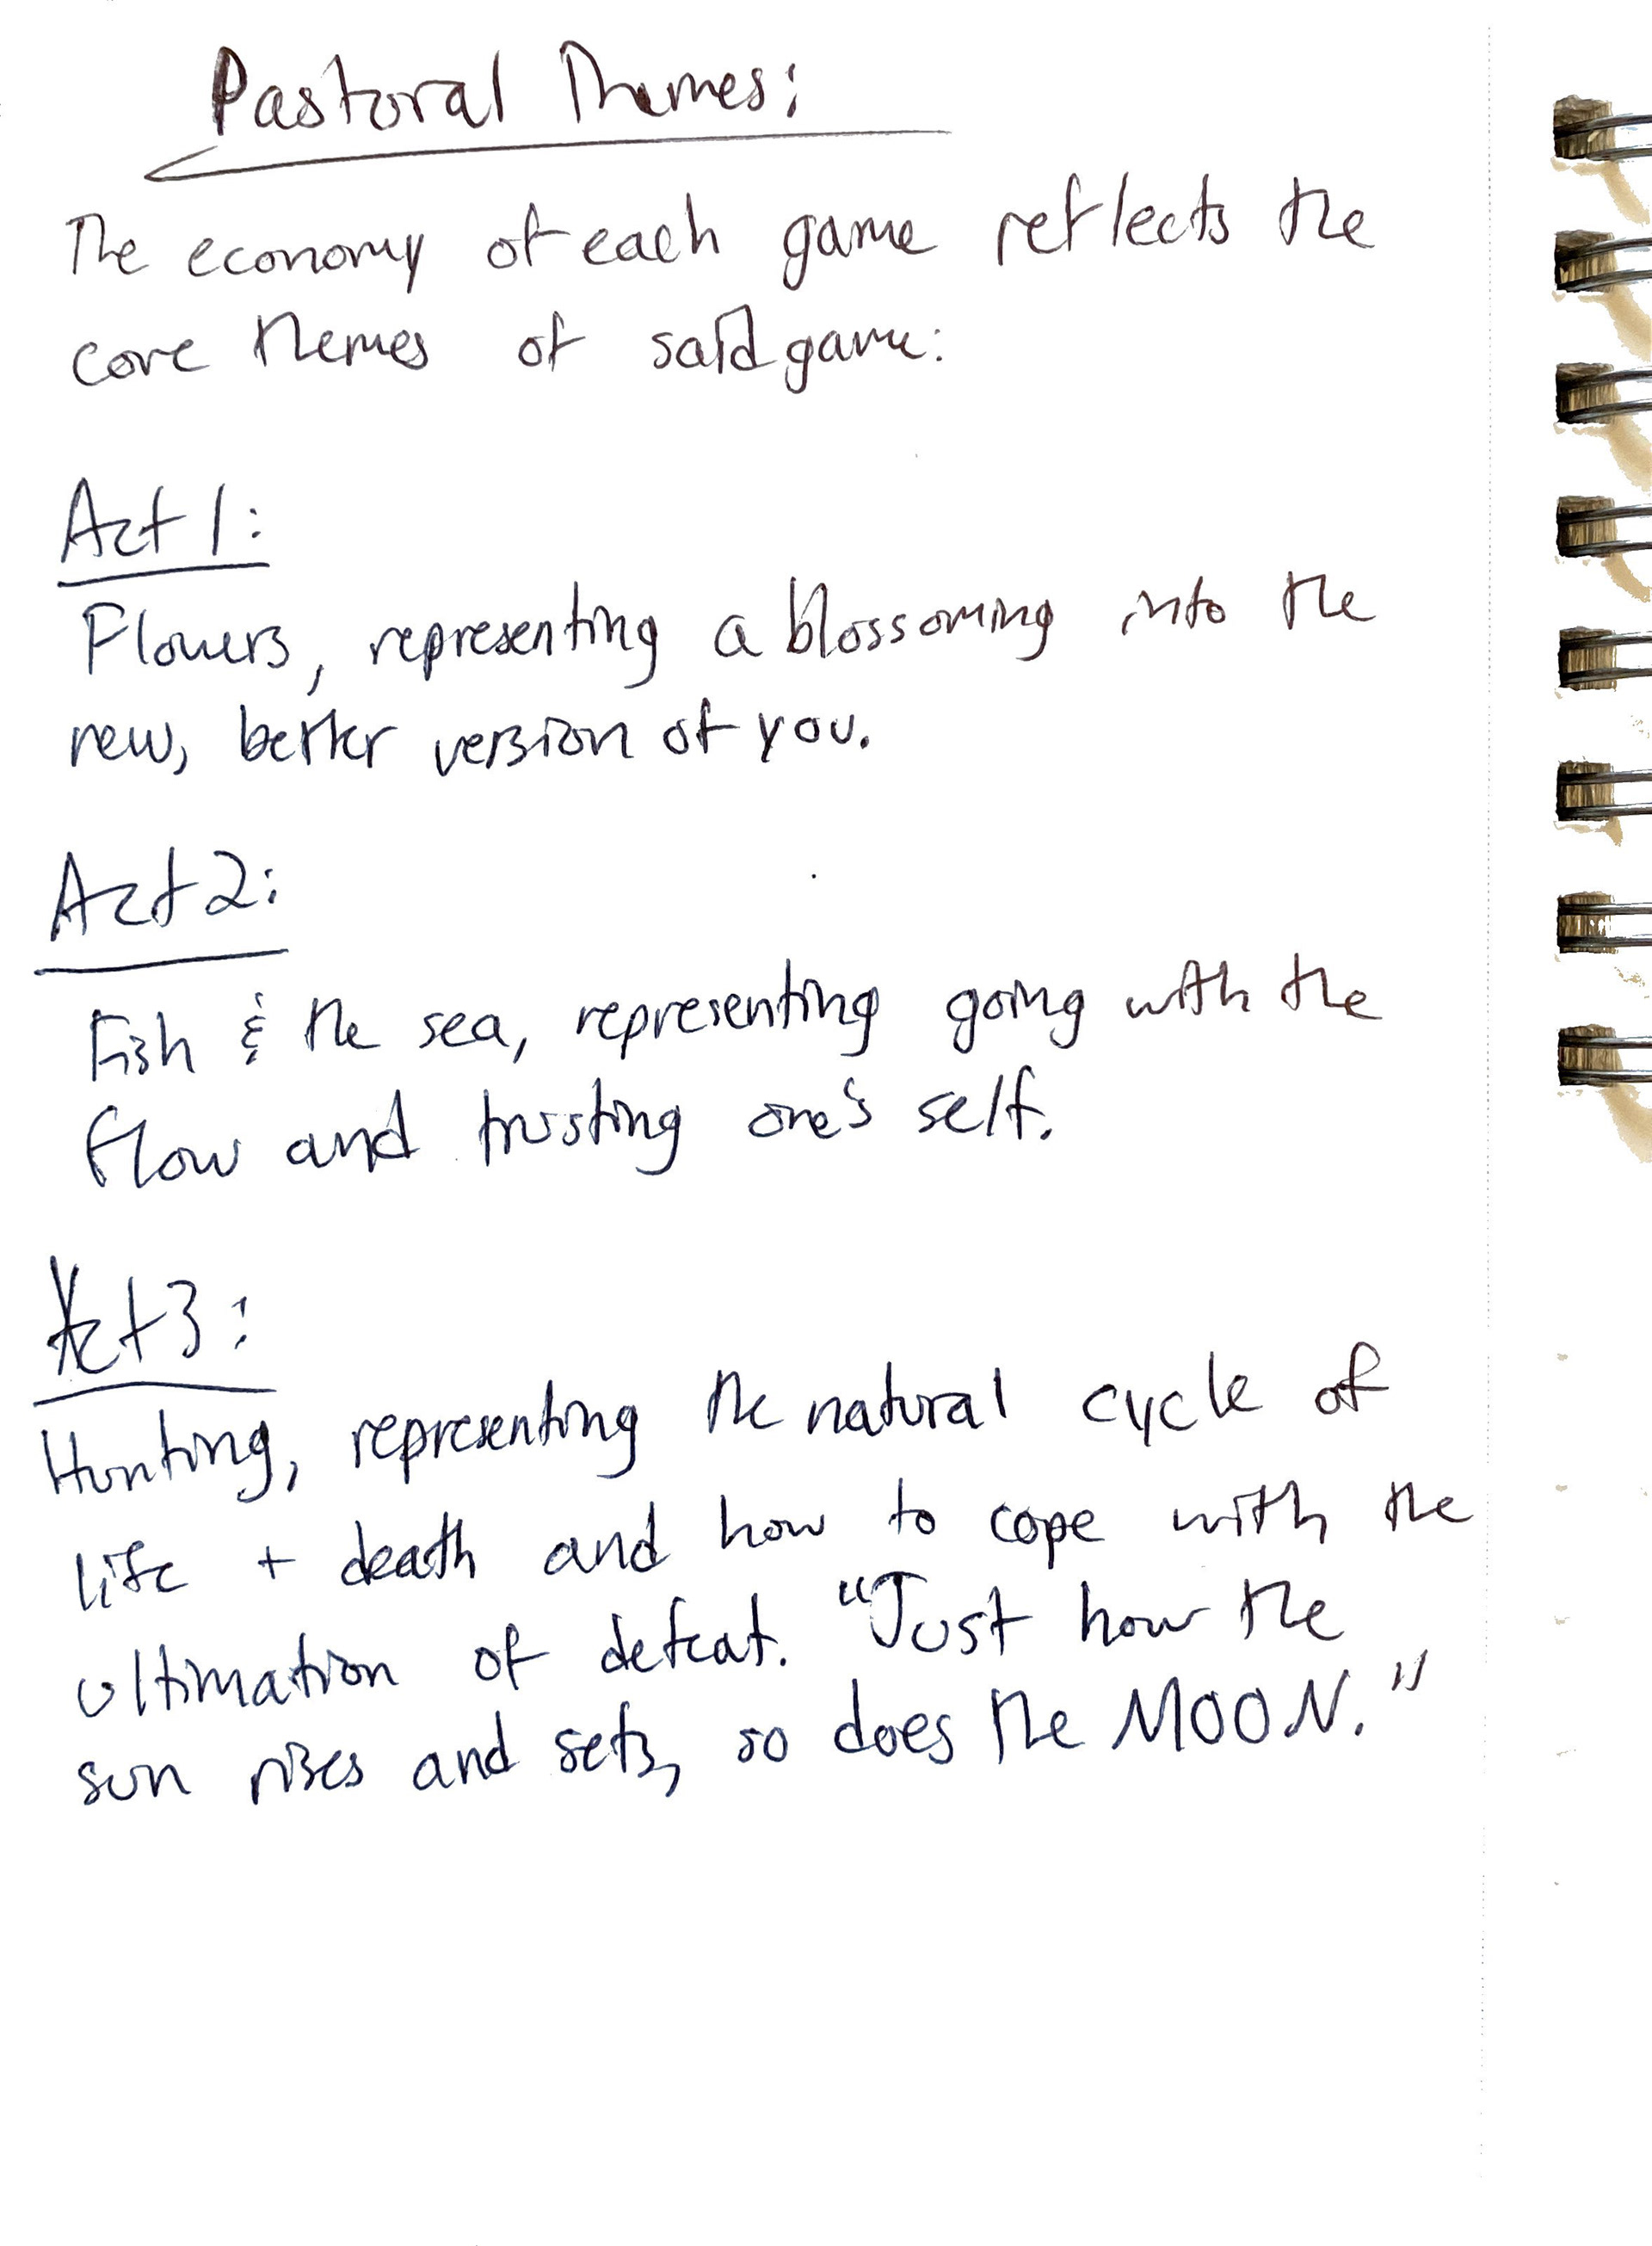 Pastoral Themes:
The economy of each game reflects the
core themes of said game:
Act 1:
Flowers, representing a blossoming into the
new, better version of you.
Act 2:
Fish & the sea, representing going with the
flow and trusting one's self.
Act 3:
Hunting, representing the natural cycle of
life + death and how to cope with the
ultimation of defeat. "Just how the
sun rises and sets, so does the MOON."